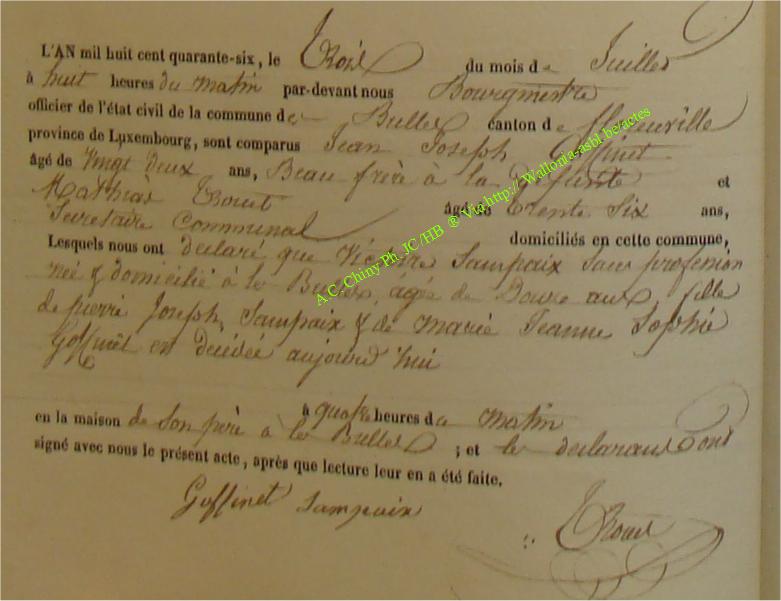 L'AN mil huit cent quarante-six, le Trois du mois de Juillet
à huit heures du matin par-devant nous Bourgmestre
officier de l'état civil de la commune de Bulles canton de Florenville
province de Luxembourg, sont comparus Jean Joseph Goffinet
âgé de vingt deux ans, Beau frère à la defunte et
Mathias âgé de Trente Six ans,
Secretaire Communal domiciliés en cette commune,
Lesquels nous ont declaré que Sampaix sans profession
née & domicilié à les Bulles, agée de Douze ans, fille
de pierre Joseph Sampaix & de marie Jeanne Sophie
Goffinet est decédée aujourd'hui
à quatre heures de matin
en la maison de Son père à les Bulles ; et les declarans ont
signé avec nous le présent acte, après que lecture leur en a été faite.
Goffinet Sampaix
A.C. Chiny Ph. JC /HB ® Via http://Wallonia-asbl.be/actes